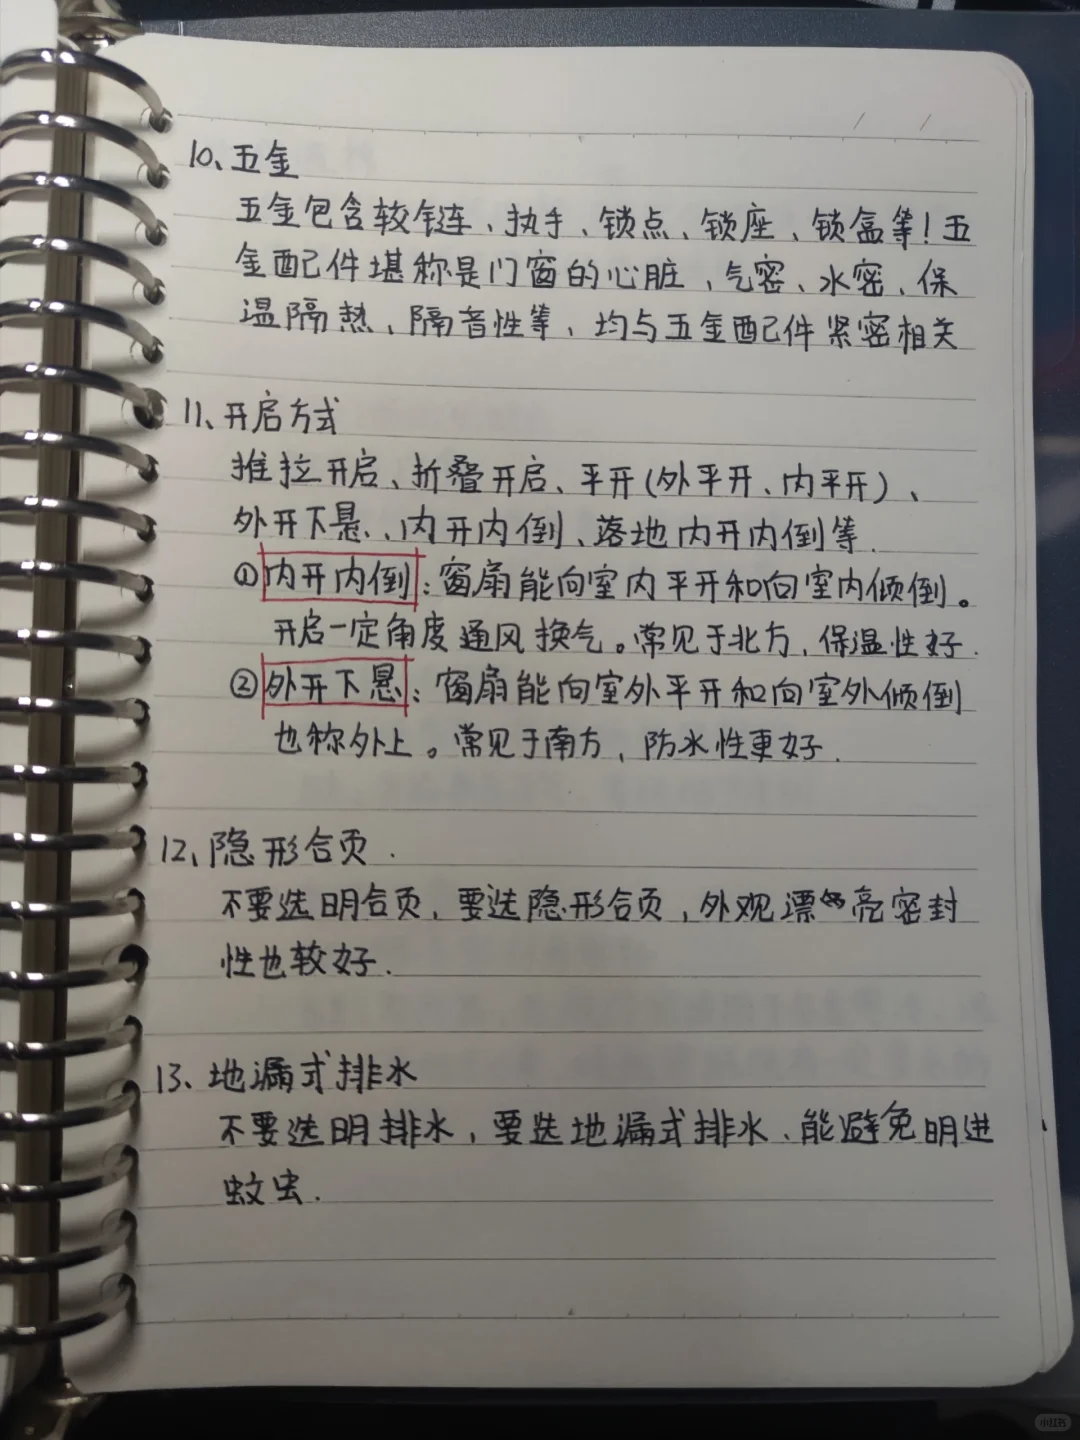 10、五金
五金包含较链、执手、锁点、锁座、锁盒等！五
金配件堪称是门窗的心脏，气密、水密、保
温隔热、隔音性等、均与五金配件紧密相关
11、开启方式
推拉开启、折叠开启、平开(外平开、内平开)、
外开下悬、内开内倒、落地内开内倒等.
①内开内倒：窗扇能向室内平开和向室内倾倒。
开启一定角度通风换气。常见于北方，保温性好.
②外开下悬：窗扇能向室外平开和向室外倾倒
也称外上。常见于南方，防水性更好.
12、隐形合页.
不要选明合页，要选隐形合页，外观漂亮密封
性也较好.
13、地漏式排水
不要选明排水，要选地漏式排水、能避免明进
蚊虫.
小红书